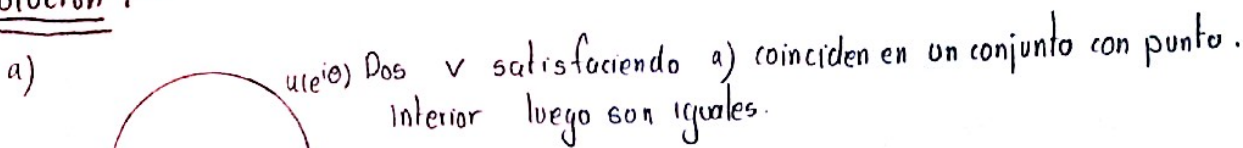 a)
u(e^{iθ}) Dos v satisfaciendo a) coinciden en un conjunto con punto.
interior luego son iguales.